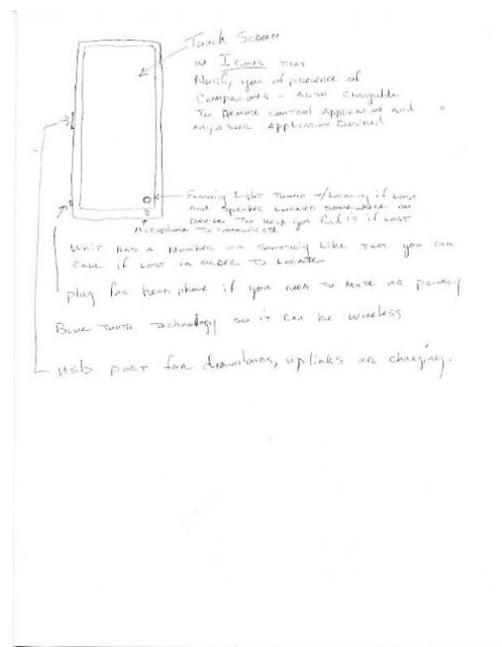 Touch Screen
w Icons that
Notify you of presence of
Companions - Also Changeable
To Remote control Application and
Any other Application Desired
Light Turns w/ if Lost
and Speaker Located somewhere on
Device To Help you find it if Lost
Microphone To communicate
Unit Has a Number or something Like That you can
Call if Lost in order To Locate
plug for head phone if you need to Mute or privacy
Blue Tooth Technology so it can be wireless
usb port for downloads, uplinks or charging.